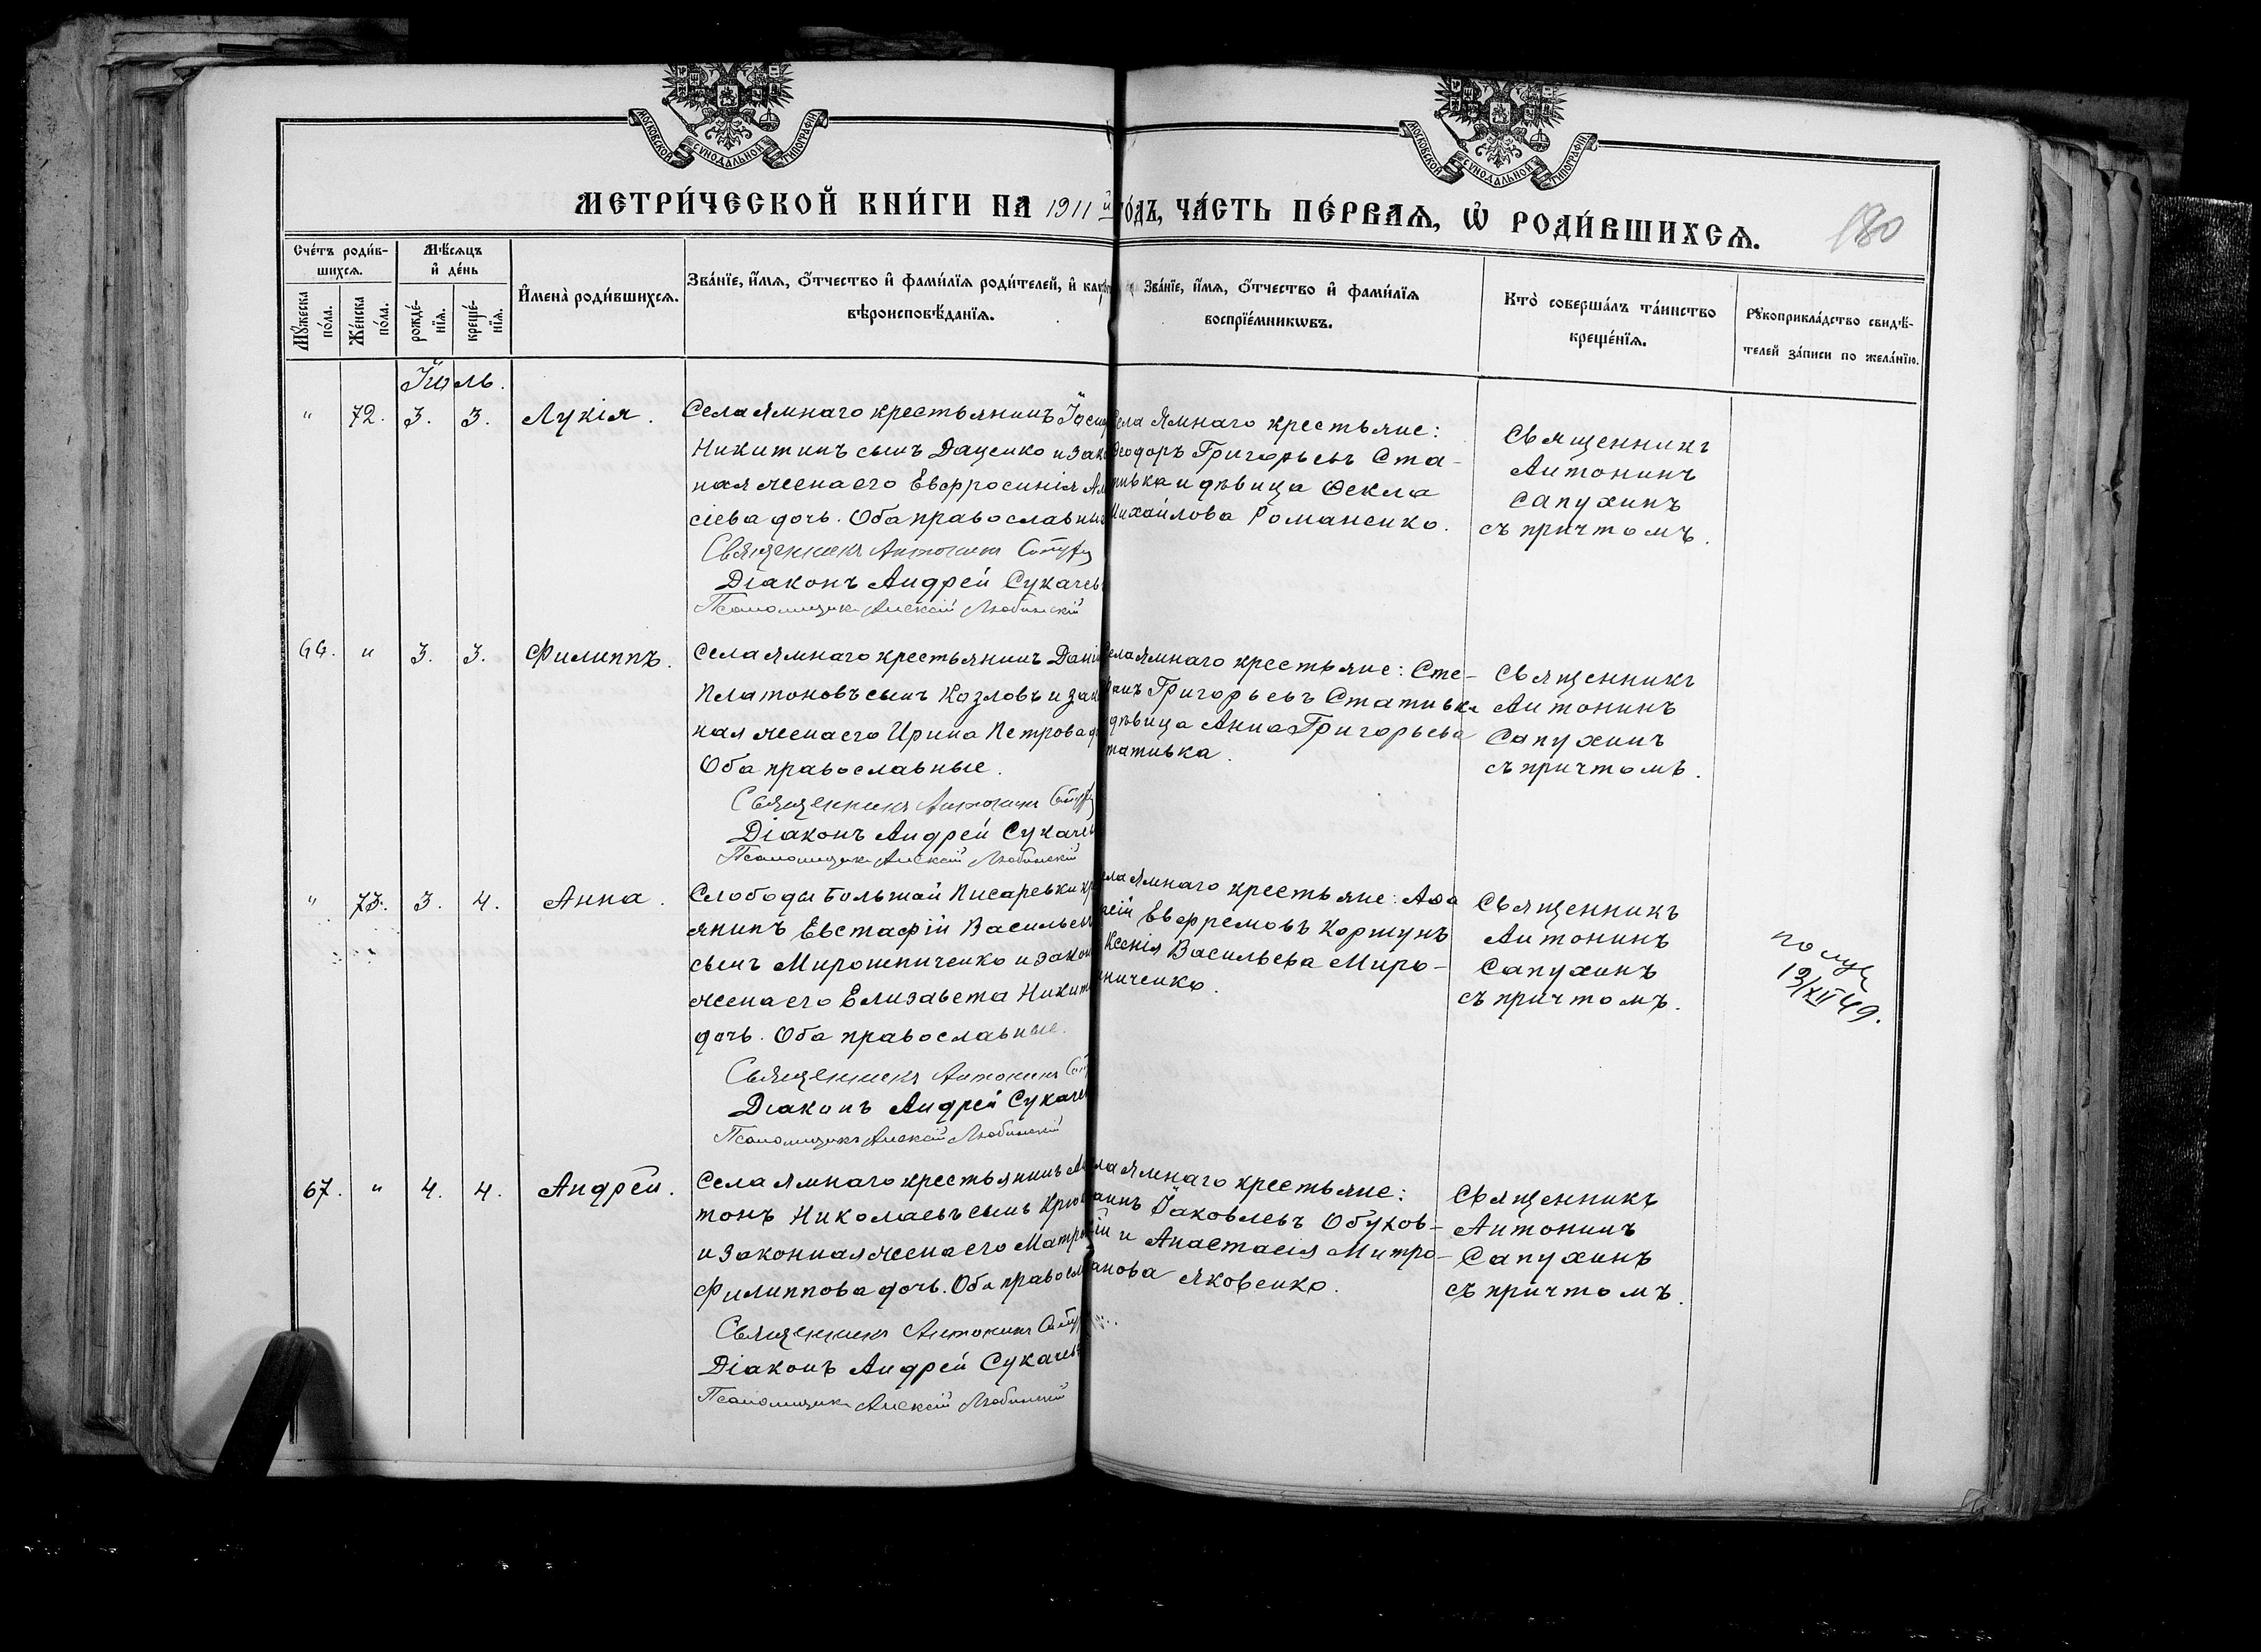 МОСКОВСКОЙ СѴНОДАЛЬНОЙ ТИПОГРАФІИ
МОСКОВСКОЙ СѴНОДАЛЬНОЙ ТИПОГРАФІИ
МЕТРИ́ЧЕСКОЙ КНИ́ГИ НА 1911 й го́дъ, ЧА́СТЬ ПЕ́РВАѦ, Ѡ҆ РОДИ́ВШИХСѦ.
180
Сче́тъ роди́в-
шихсѧ.
Мѣ́сѧцъ
и҆ де́нь
Мꙋ́жеска по́ла.
Же́нска по́ла.
рожде́-
нїѧ.
креще́-
нїѧ.
И҆мена̀ роди́вшихсѧ.
Зва́нїе, и҆́мѧ, ѻ҆́тчество и҆ фами́лїѧ роди́телей, и҆ како́гѡ
вѣроисповѣ́данїѧ.
Зва́нїе, и҆́мѧ, ѻ҆́тчество и҆ фами́лїѧ
воспрїе́мникѡвъ.
Кто̀ соверша́лъ та́инство
креще́нїѧ.
Рꙋкоприкла́дство свидѣ́-
телей за́писи по жела́нїю.
Іюль.
" 72. 3. 3. Лукія.
Села Ямнаго крестьянинъ
Никитинъ сынъ Даценко и зак
ная жена его Евфросинія Ал
сіева дочь. Оба православны
Священникъ Антонинъ
Діаконъ Андрей Сукачев
Псаломщикъ Алексій Любинскій
села Ямнаго крестьяне:
Ѳеодоръ Григорьевъ Ста-
тивка и дѣвица Ѳекла
Михайлова Романенко.
Священникъ
Антонинъ
Сапухинъ
съ причтомъ.
66. " 3. 3. Филиппъ.
Села Ямнаго крестьянинъ Дані
Платоновъ сынъ Козловъ и зак
ная жена его Ирина Петрова д
Оба православные.
Священникъ Антонинъ
Діаконъ Андрей Сукачев
Псаломщикъ Алексій Любинскій
ела Ямнаго крестьяне: Сте-
фанъ Григорьевъ Стативка
дѣвица Анна Григорьева
тативка.
Священникъ
Антонинъ
Сапухинъ
съ причтомъ.
" 73. 3. 4. Анна.
Слободы Большой Писаревки кр
янинъ Евстафій Васильевъ
сынъ Мирошниченко и закон
жена его Елизавета Никит
дочь. Оба православные.
Священникъ Антонинъ
Діаконъ Андрей Сукачев
Псаломщикъ Алексій Любинскій
ела Ямнаго крестьяне: Аѳа
асій Евфремовъ Коршунъ
Ксенія Васильева Миро-
ниченко.
Священникъ
Антонинъ
Сапухинъ
съ причтомъ.
13/XII 49.
67. " 4. 4. Андрей.
Села Ямнаго крестьянинъ
тонъ Николаевъ сынъ
и законная жена его Матр
Филиппова дочь. Оба правосл
Священникъ Антонинъ
Діаконъ Андрей Сукачев
Псаломщикъ Алексій Любинскій
ла Ямнаго крестьяне:
Іаковлевъ Обухов-
ій и Анастасія Митро-
анова Яковенко.
Священникъ
Антонинъ
Сапухинъ
съ причтомъ.